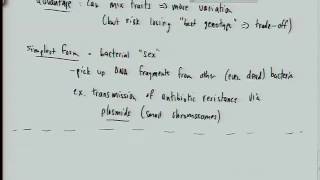 Advantage : can mix traits ⇒ more variation
(but risk losing "best genotype" ⇒ trade-off)
Simplest form - bacterial "sex"
- pick up DNA fragments from other (even dead) bacteria
ex. transmission of antibiotic resistance via
plasmids (small chromosomes)